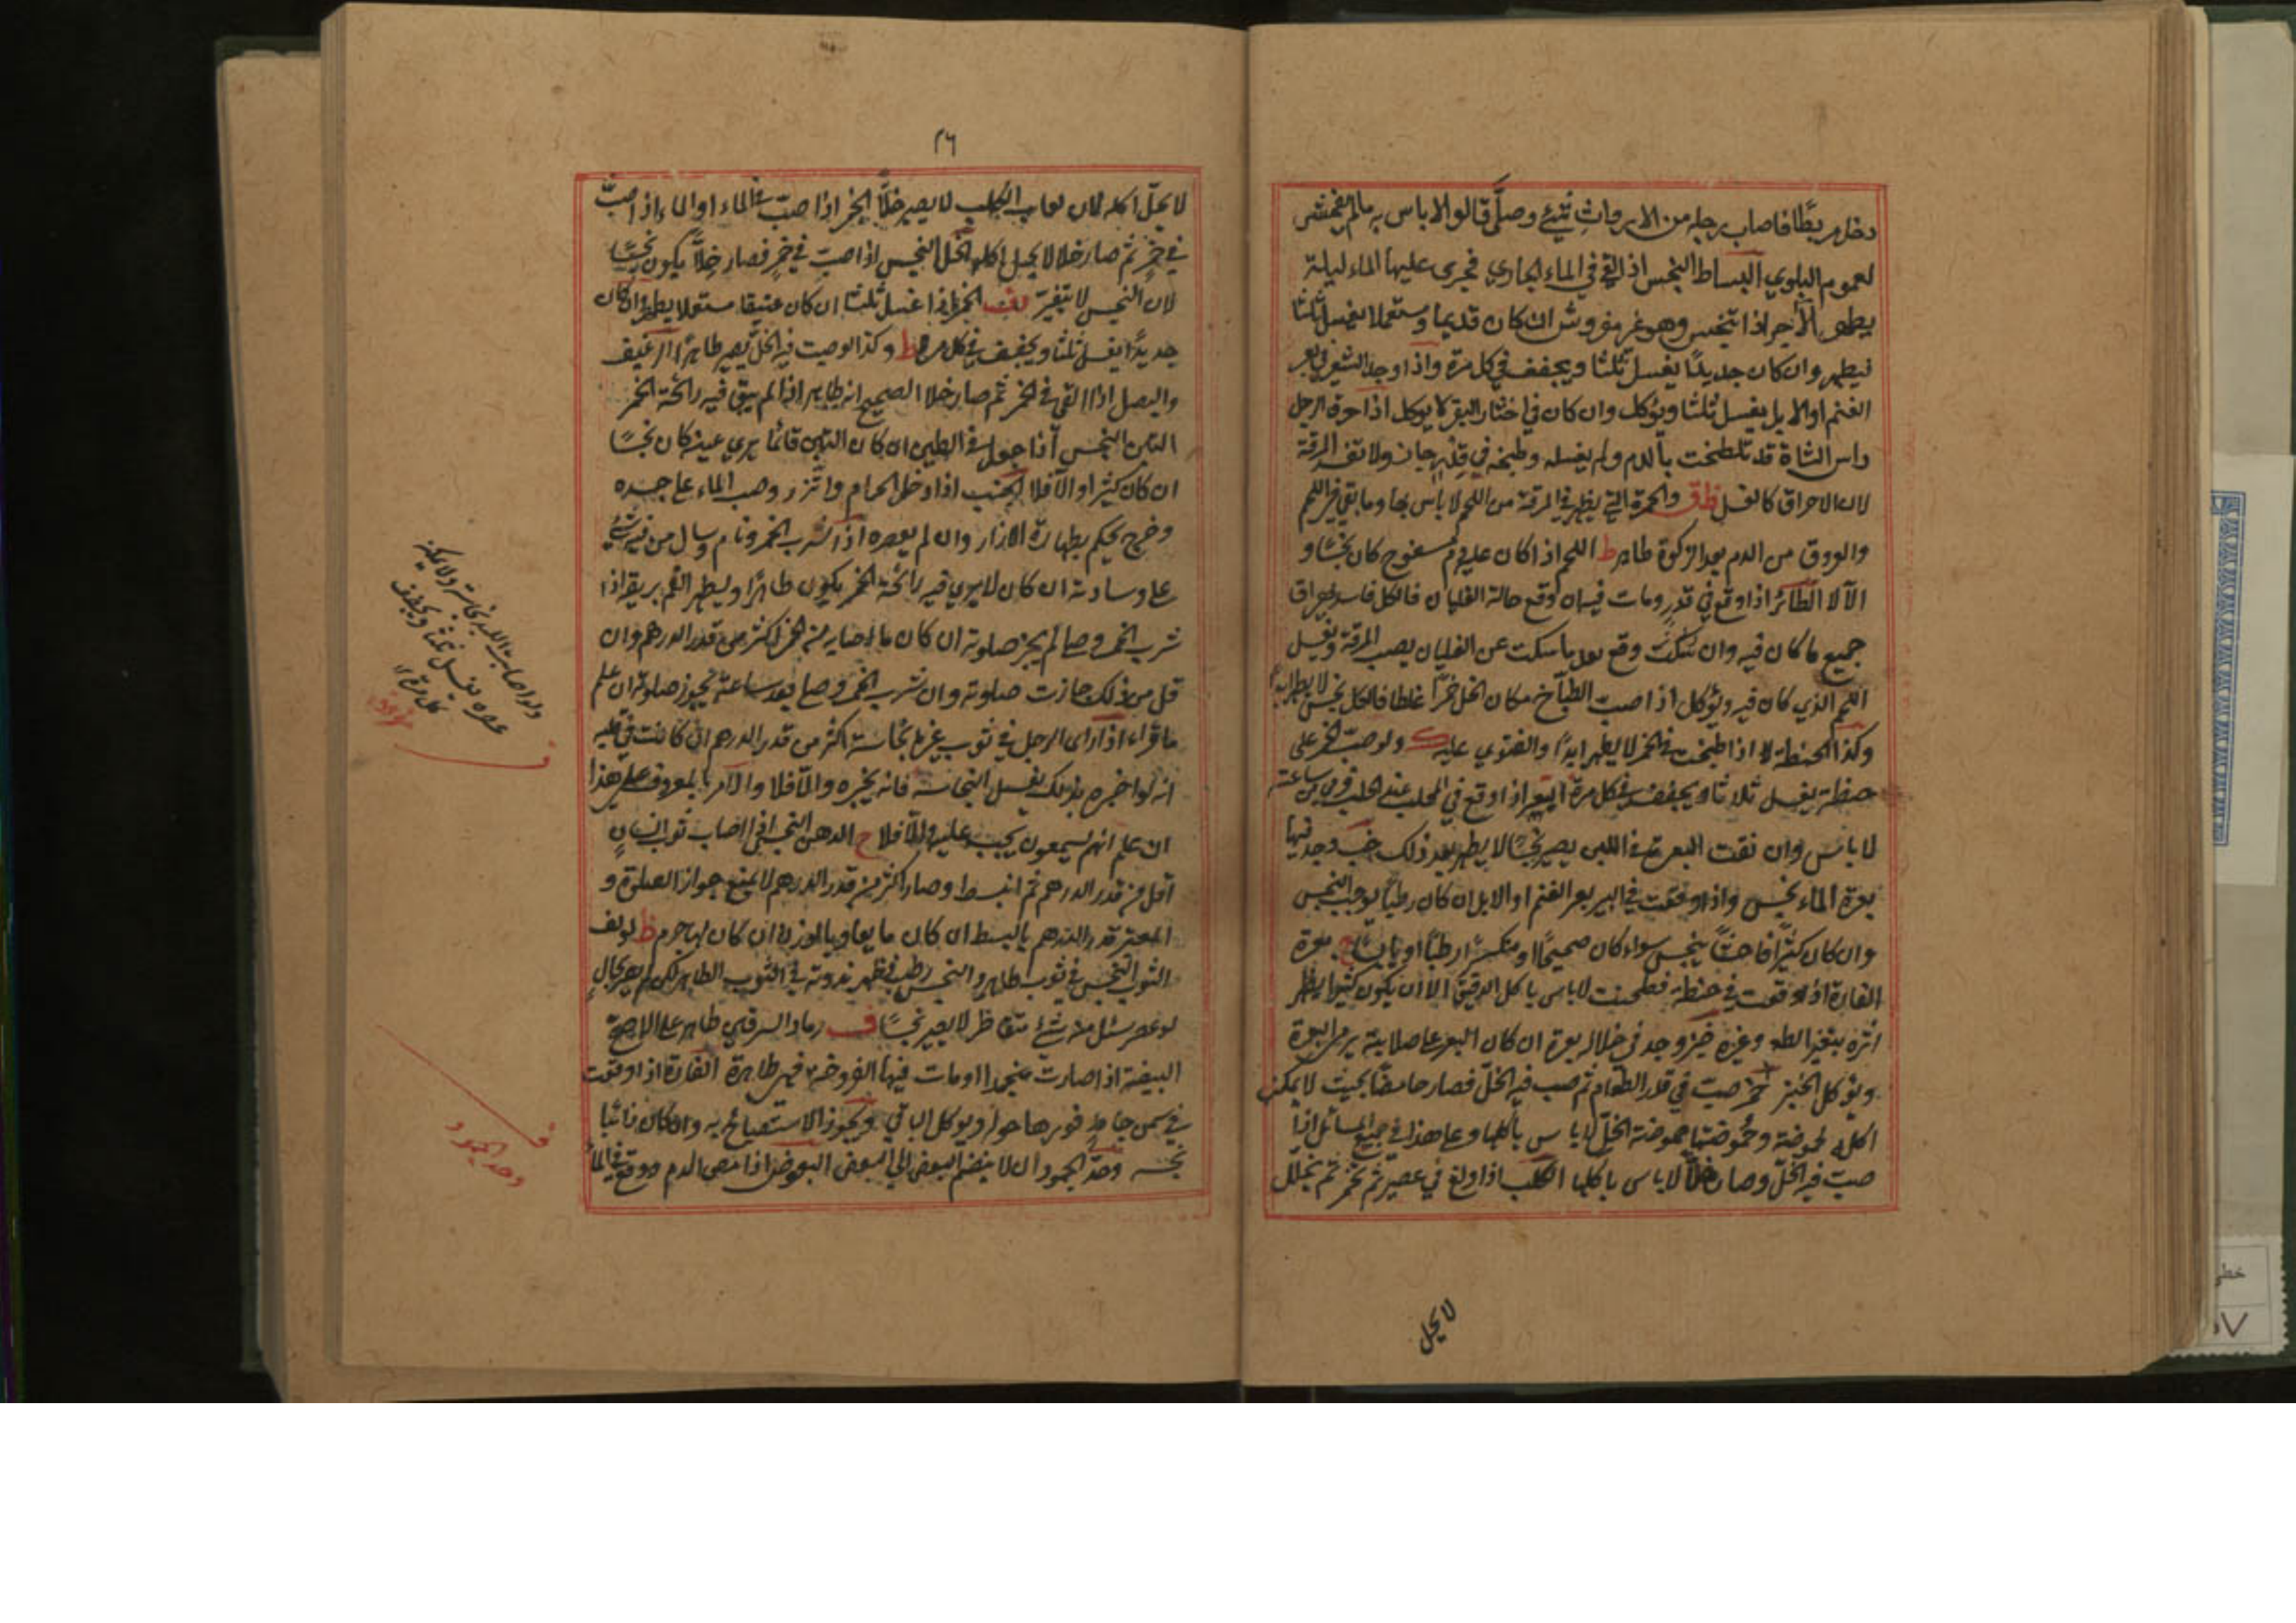 دخل مربطا فاصاب رجله من الارواث شيء وصلى قالوا لا باس به ما لم يفحش
لعموم البلوى البساط النجس اذا القي في الماء الجاري فجرى عليها الماء ليلة
يطهر الآجر اذا تنجس وهو غير مفروش ان كان قديما مستعملا يغسل ثلثا
فيطهر وان كان جديدا يغسل ثلثا ويجفف في كل مرة واذا وجد الشعير في بعر
الغنم او الابل يغسل ثلثا ويؤكل وان كان في اخثاء البقر لا يوكل اذا احرق الرجل
راس الشاة قد تلطخت بالدم ولم يغسله وطبخه في قدر جاز ولا تفسد المرقة
لان الاحراق كالغسل والحمرة التي يظهر في المرقة من اللحم لا باس بها وما بقي في اللحم
والعروق من الدم بعد الزكوة طاهر ط اللحم اذا كان عليه دم مسفوح كان نجسا و
الا لا الطائر اذا وقع في قدر ومات فيه ان وقع حالة الغليان فالكل فاسد يهراق
جميع ما كان فيه وان سكنت وقع بعد ما سكت عن الغليان يصب المرقة ويغسل
اللحم الذي كان فيه ويؤكل اذا صب الطباخ مكان الخل خمرا غلطا فالكل نجس لا يطهر ابدا
وكذا الحنطة اذا طبخت في الخمر لا يطهر ابدا والفتوي عليه ولو صب الخمر على
حنطة يغسل ثلاثا ويجفف في كل مرة البعر اذا وقع في المحلب عند الحلب فرمي من ساعته
لا باس وان تفتت البعرة في اللبن يصير نجسا لا يطهر بعد ذلك وجد فيها
بعرة الماء نجس واذا وقعت في البير بعر الغنم او الابل ان كان رطبا يوجب النجس
وان كان كثيرا فاحشا ينجس سواء كان صحيحا او متكسرا رطبا او يابسا بعرة
الفارة اذا وقعت في حنطة فطحنت لا باس باكل الدقيق الا ان يكون كثيرا يظهر
اثره بتغير الطعم وغيره خبز وجد في خلاله بعرة ان كان البعر على صلابته يرمى البعرة
ويؤكل الخبز خمر صبت في قدر الطعام ثم صب فيه الخل فصار حامضا بحيث لا يمكن
اكله لحموضة وحموضتها حموضة الخل لا باس باكلها وعلى هذا في جميع المسائل اذا
صب فيه الخل وصار خلا لا باس باكلها الكلب اذا ولغ في عصير ثم تخمر ثم تخلل
لا يحل
٢٦
لا يحل اكله لان لعاب الكلب لا يصير خلا الخمر اذا صب في الماء او الماء اذا صب
في خمر ثم صار خلا لا يحل اكله الخل النجس اذا صب في خمر فصار خلا يكون نجسا
لان النجس لا يتغير الخمر اذا غسل ثلثا ان كان عتيقا مستعملا يطهر وان كان
جديدا يغسل ثلثا ويجفف في كل مرة ط وكذا لو صب فيه الخل يصير طاهرا الرغيف
والبصل اذا القي في الخمر ثم صار خلا الصحيح انه طاهر اذا لم يبق فيه رائحة الخمر
التبن النجس اذا جعل في الطين ان كان التبن قائما يري عينه كان نجسا
ان كان كثيرا والا فلا الجنب اذا دخل الحمام واتزر وصب الماء على جسده
وخرج يحكم بطهارة الازار وان لم يعصره اذا شرب الخمر ونام وسال من فيه شيء
على وسادته ان كان لا يري فيه رائحة الخمر يكون طاهرا ويطهر الفم بريقه اذا
شرب الخمر وصلى لم يجز صلوته ان كان ما اصابه من الخمر اكثر من قدر الدرهم وان
قل من ذلك جازت صلوته وان شرب الخمر وصلى بعد ساعة يجوز صلوته ان علم
ما قراء اذا راى الرجل في ثوب غيره نجاسة اكثر من قدر الدرهم ان كانت في قلبه
انه لو اخبره بذلك يغسل النجاسة فانه يخبره والا فلا والامر بالمعروف على هذا
ان علم انهم يسمعون يجب عليه والا فلا ح الدهن النجس اذا اصاب ثوب انسان
اقل من قدر الدرهم ثم انبسط وصار اكثر من قدر الدرهم لا يمنع جواز الصلوة و
المعتبر قدر الدرهم بالبسط ان كان مايعا وبالوزن ان كان لها جرم ظ لو لف
الثوب النجس في ثوب طاهر والنجس رطب فظهر ندوته في الثوب الطاهر لكن لم يصر بحال
لو عصر يسئل منه شيء متقاطر لا يصير نجسا ف رماد السرقين طاهر على الاصح
البيضة اذا صارت منجمدا او مات فيها الفروخة فهي طاهرة الفارة اذا وقعت
في سمن جامد قور ما حولها ويوكل الباقي ويجوز الاستصباح به وان كان ذائبا
نجسه وحد الجمود ان لا ينضم البعض الي البعض البعوض اذا مص الدم ووقع في الماء
ولو اصابت اللبد نجاسة ولا يمكنه
عصره يغسل ثلثا ويجفف
كل مرة
وحد الجمود